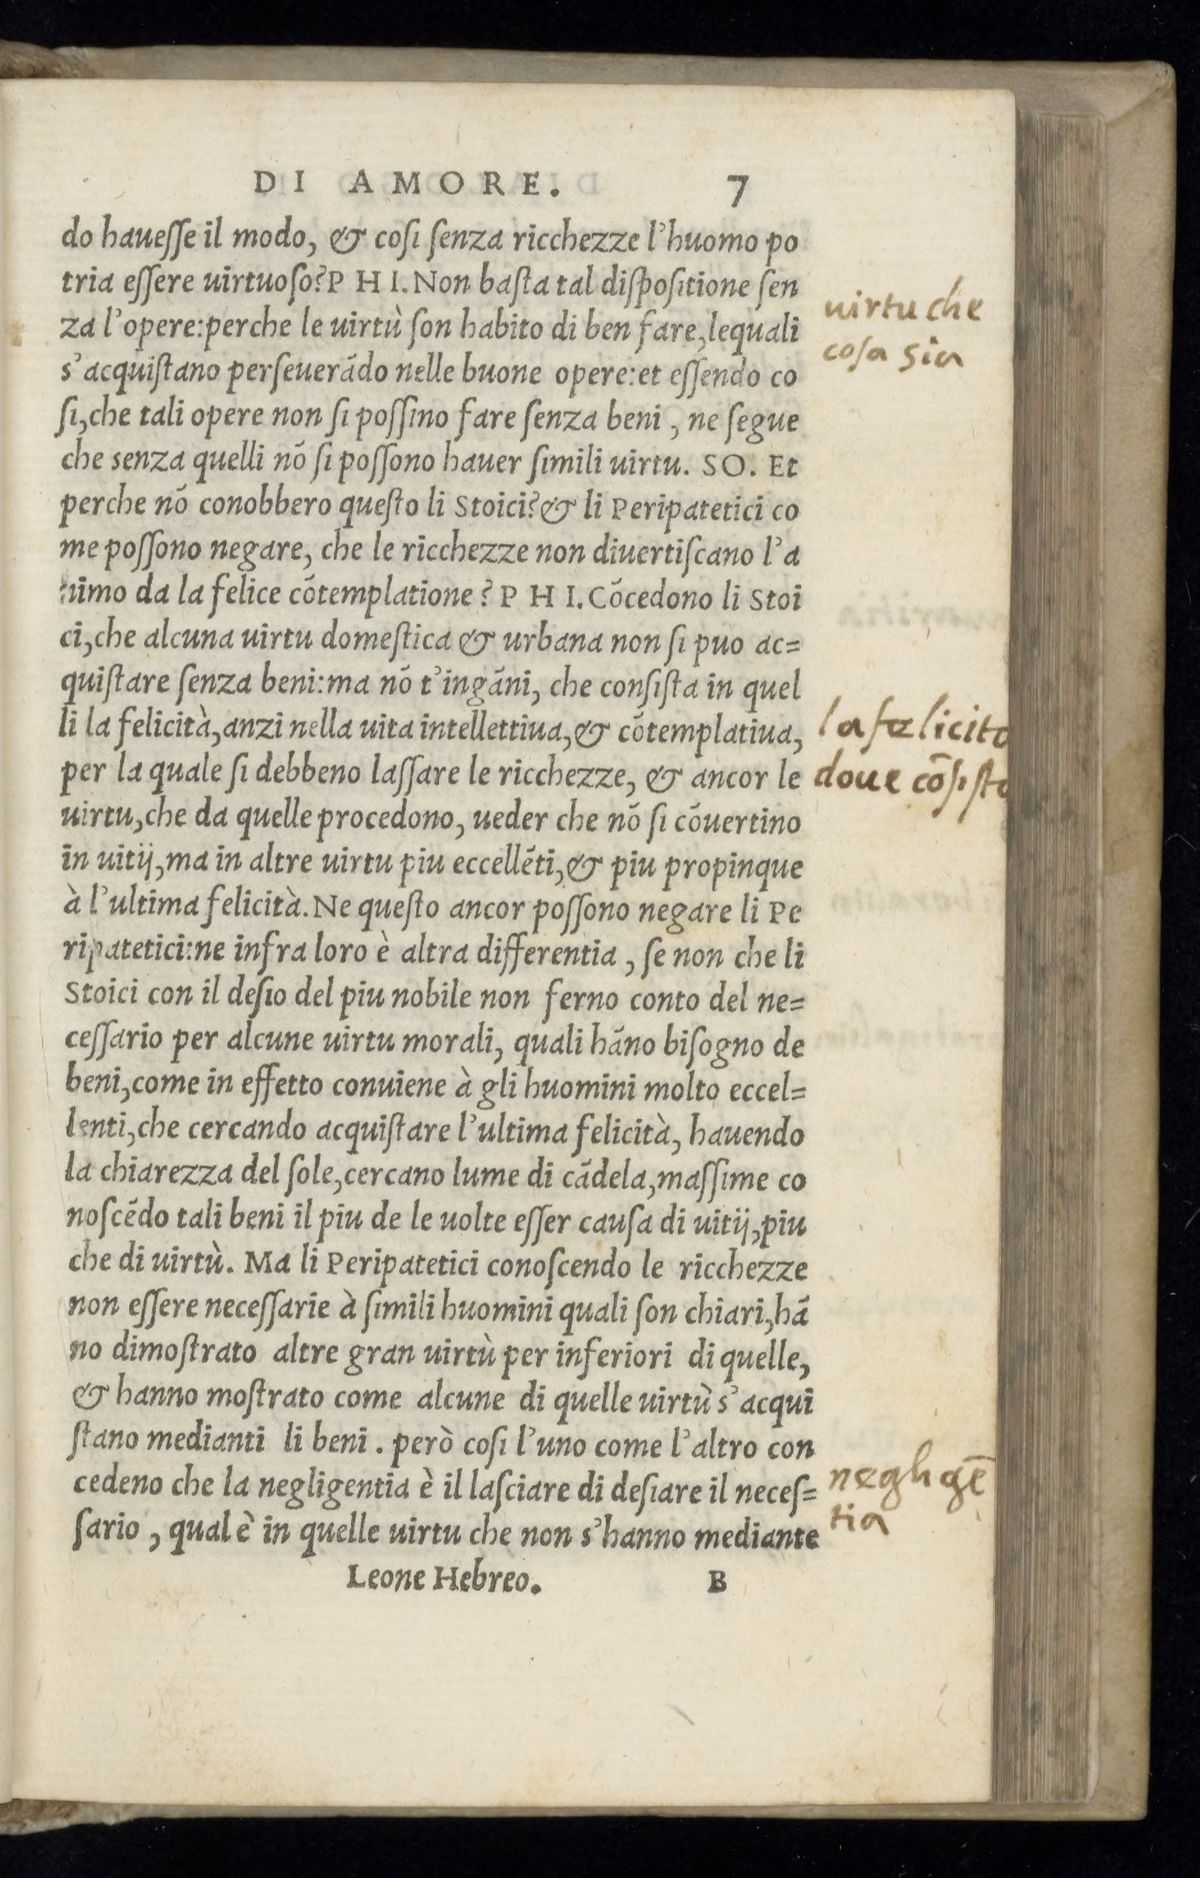 DI AMORE. 7
do hauesſe il modo, & coſi ſenza ricchezze l'huomo po
tria eſſere uirtuoſo? PHI. Non baſta tal diſpoſitione ſen
za l'opere:perche le uirtù ſon habito di ben fare,lequali
s'acquiſtano perſeuerãdo nelle buone opere:et eſſendo co
ſi,che tali opere non ſi poſſino fare ſenza beni, ne ſegue
che senza quelli nõ ſi poſſono hauer ſimili uirtu. SO. Et
perche nõ conobbero queſto li Stoici?& li Peripatetici co
me poſſono negare, che le ricchezze non diuertiſcano l'a
nimo da la felice cõtemplatione? PHI. Cõcedono li Stoi
ci,che alcuna uirtu domeſtica & urbana non ſi puo ac=
quiſtare ſenza beni:ma nõ t'ingãni, che conſiſta in quel
li la felicità,anzi nella uita intellettiua,& cõtemplatiua,
per la quale ſi debbeno laſſare le ricchezze, & ancor le
uirtu,che da quelle procedono, ueder che nõ ſi cõuertino
in uitij,ma in altre uirtu piu eccellẽti,& piu propinque
à l'ultima felicità. Ne queſto ancor poſſono negare li Pe
ripatetici:ne infra loro è altra differentia, ſe non che li
Stoici con il deſio del piu nobile non ferno conto del ne=
ceſſario per alcune uirtu morali, quali hãno biſogno de
beni,come in effetto conuiene à gli huomini molto eccel=
lenti,che cercando acquiſtare l'ultima felicità, hauendo
la chiarezza del ſole,cercano lume di cãdela,maſſime co
noſcẽdo tali beni il piu de le uolte eſſer cauſa di uitij,piu
che di uirtù. Ma li Peripatetici conoſcendo le ricchezze
non eſſere neceſſarie à ſimili huomini quali ſon chiari,hã
no dimoſtrato altre gran uirtù per inferiori di quelle,
& hanno moſtrato come alcune di quelle uirtù s'acqui
ſtano medianti li beni. però coſi l'uno come l'altro con
cedeno che la negligentia è il laſciare di deſiare il neceſ=
ſario, qual è in quelle uirtu che non s'hanno mediante
Leone Hebreo. B
uirtu che
coſa sia
la fælicita
doue cõſiſta
neghgẽ
tia